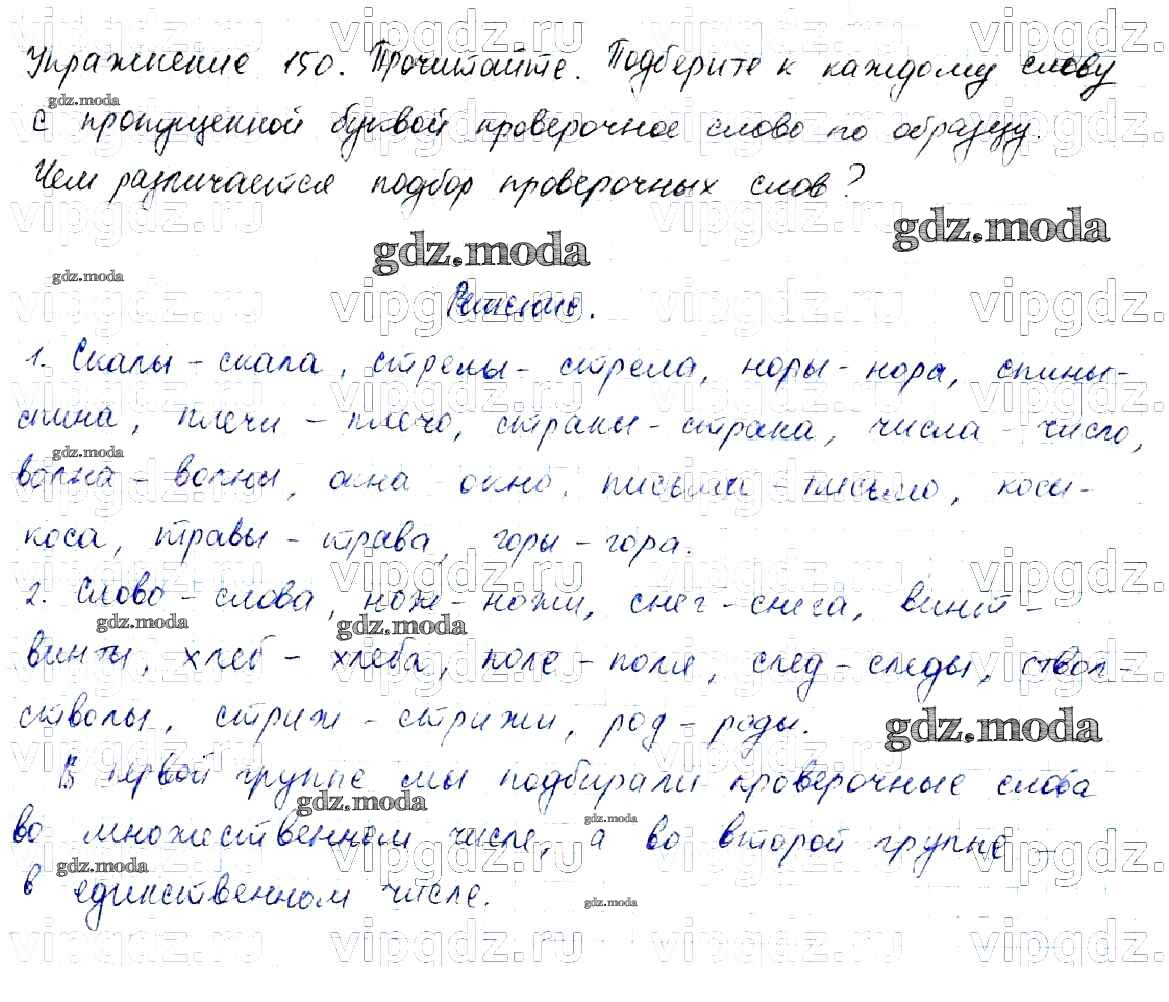 Упражнение 150. Прочитайте. Подберите к каждому слову
с пропущенной буквой проверочное слово по образцу.
Чем различается подбор проверочных слов?
Решение.
1. Скалы - скала, стрелы - стрела, норы - нора, спины-
спина, плечи - плечо, страны - страна, числа - число,
волна - волны, окна - окно, письма - письмо, косы -
коса, травы - трава, горы - гора.
2. Слово - слова, нож - ножи, снег - снега, винт -
винты, хлеб - хлеба, поле - поля, след - следы, ствол -
стволы, стриж - стрижи, род - роды.
В первой группе мы подбирали проверочные слова
во множественном числе, а во второй группе -
в единственном числе.